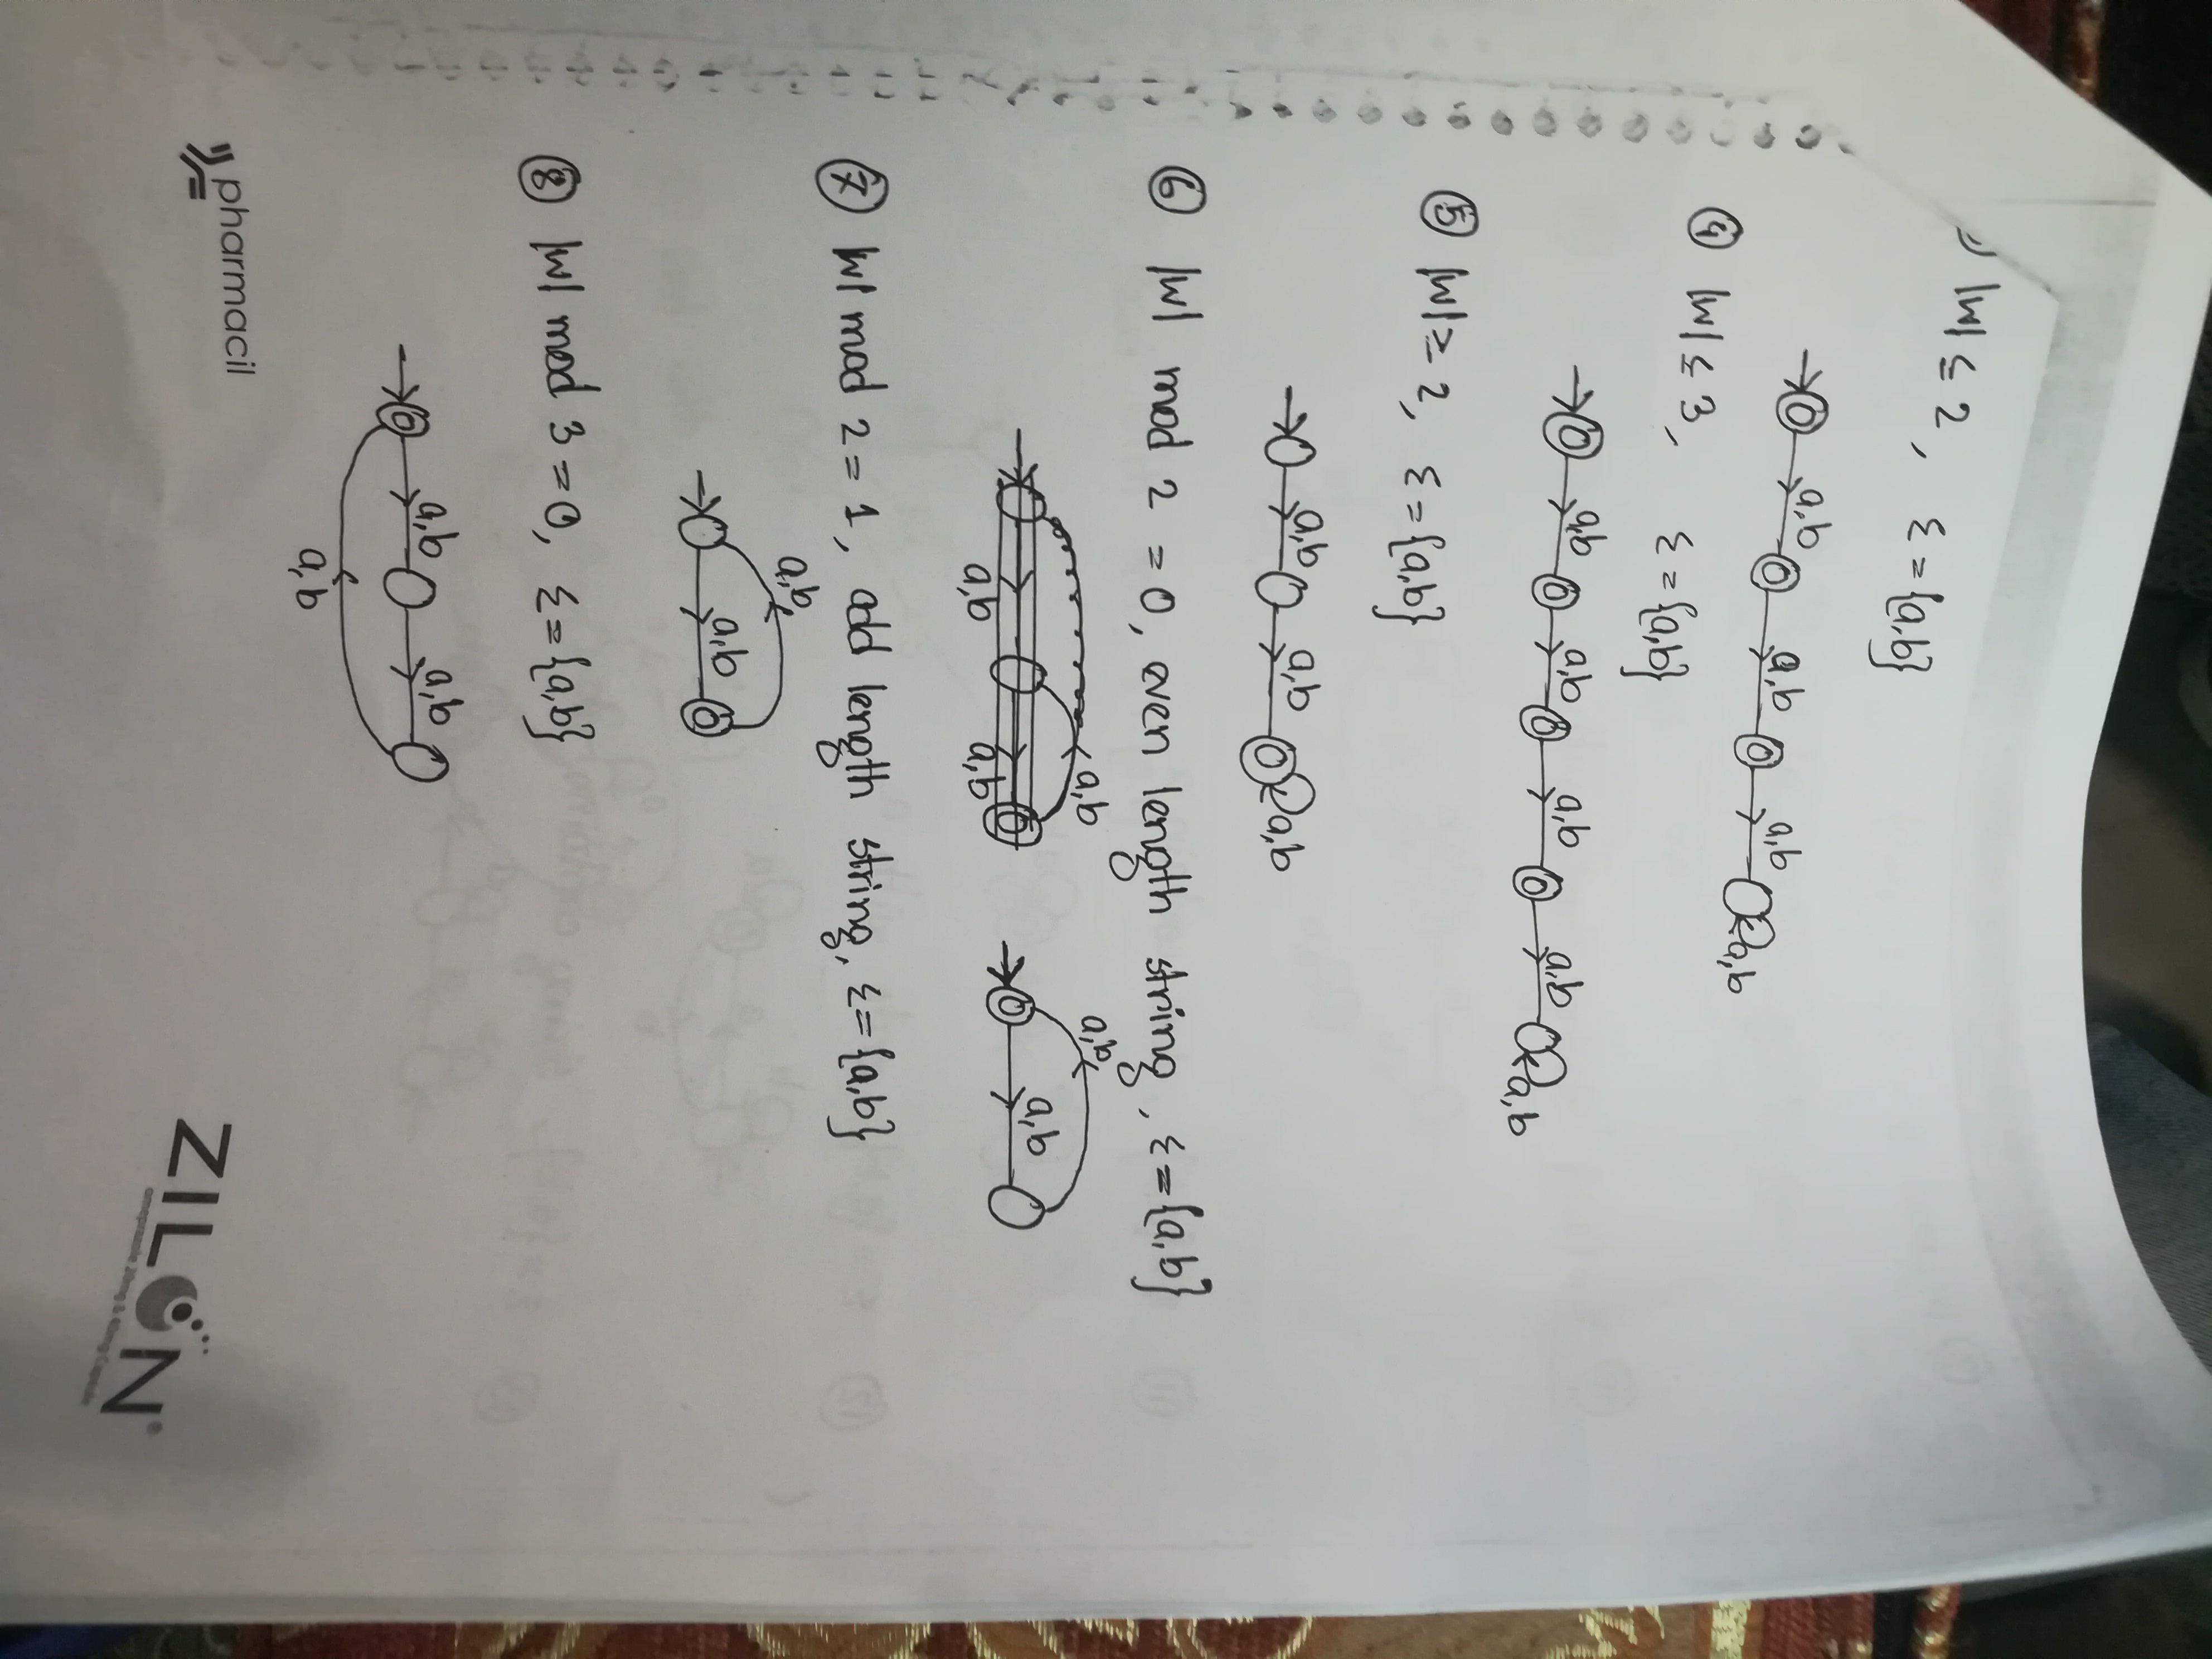 ) |w| ≤ 2, Σ = {a,b}
a,b a,b a,b a,b
④ |w| ≤ 3, Σ = {a,b}
a,b a,b a,b a,b a,b
⑤ |w| ≥ 2, Σ = {a,b}
a,b a,b a,b
⑥ |w| mod 2 = 0, even length string, Σ = {a,b}
a,b a,b
a,b
a,b a,b
⑦ |w| mod 2 = 1, odd length string, Σ = {a,b}
a,b
a,b
⑧ |w| mod 3 = 0, Σ = {a,b}
a,b a,b
a,b
pharmacil
ZILON®
omeprazole 20mg & 40mg Capsule